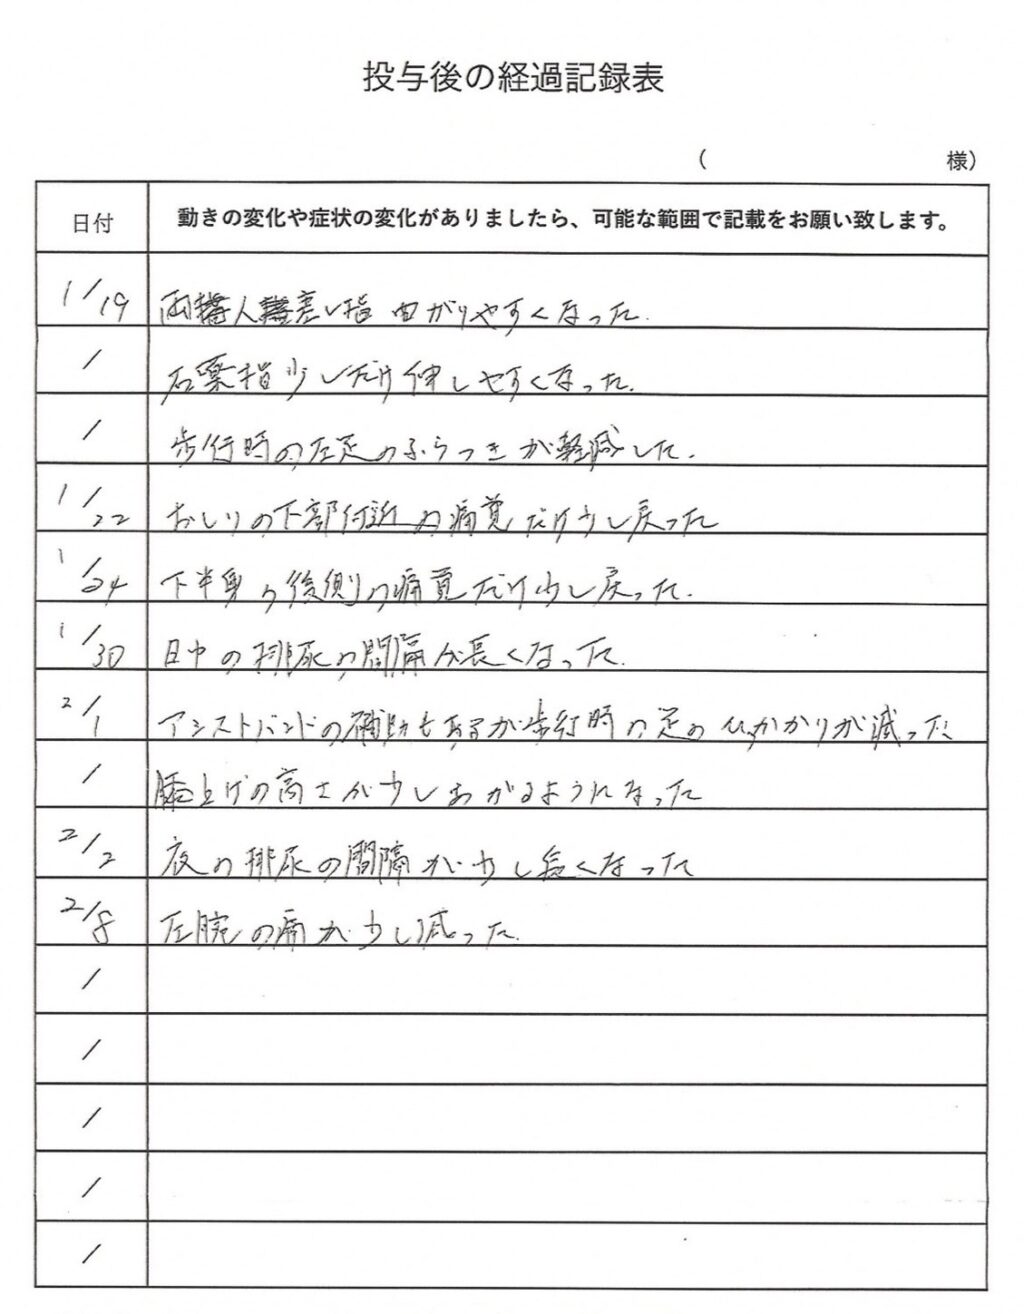 投与後の経過記録表
( 様)
日付 動きの変化や症状の変化がありましたら、可能な範囲で記載をお願い致します。
1/19 両 人差し指 曲がりやすくなった.
/ 右薬指少しだけ伸しやすくなった.
/ 歩行時の左足のふらつきが軽減した.
1/22 おしりの下部付近の痛覚だけ少し戻った
1/24 下半身の後側の痛覚だけ少し戻った.
1/30 日中の排尿の間隔が長くなった.
2/1 アシストバンドの補助もあるが歩行時の足のひっかかりが減った
/ 膝上げの高さが少しあがるようになった
2/2 夜の排尿の間隔が少し長くなった
2/8 左腕の痛が少し減った.
/
/
/
/
/